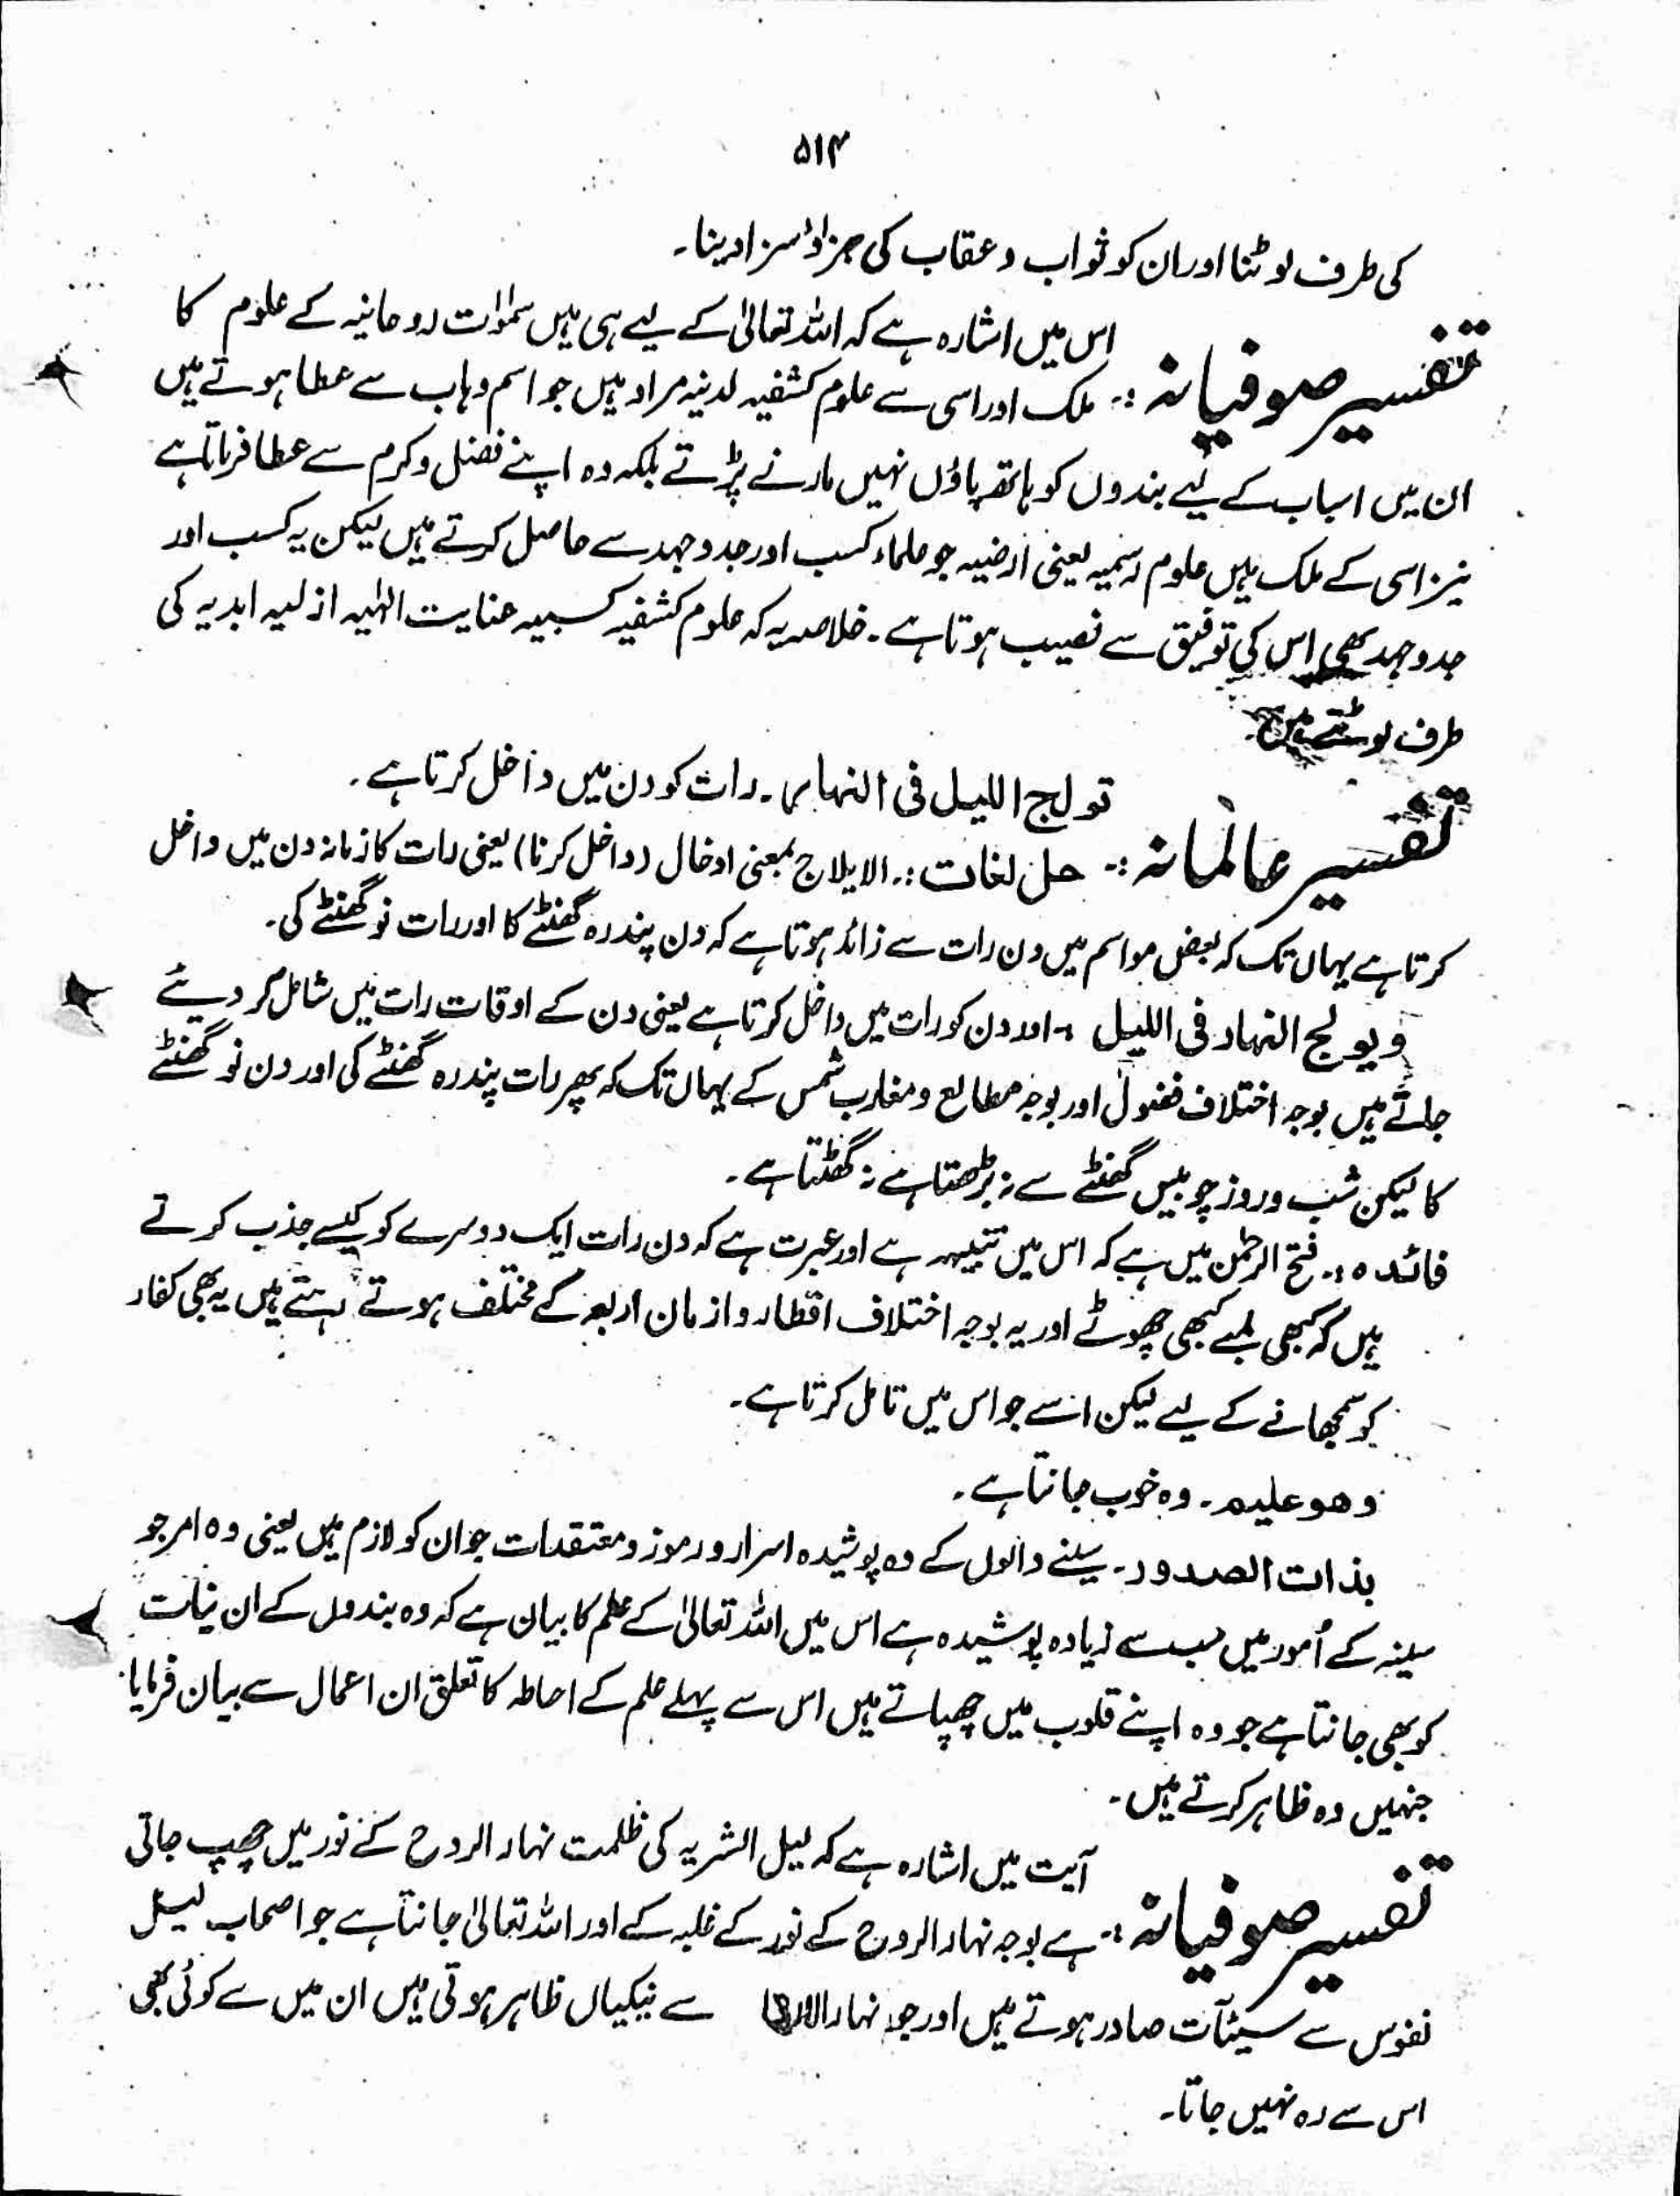 ۵۱۴
کی طرف لوٹنا اور ان کو ثواب و عقاب کی جزاؤ سزا دینا۔
اس میں اشارہ ہے کہ اللہ تعالیٰ کے لیے ہی ہیں سمٰوٰت روحانیہ کے علوم کا
تفسیر صوفیانہ :۔ ملک اور اسی سے علوم کشفیہ لدنیہ مراد ہیں جو اسم وہاب سے عطا ہوتے ہیں
ان میں اسباب کے لیے بندوں کو ہاتھ پاؤں نہیں مارنے پڑتے بلکہ وہ اپنے فضل و کرم سے عطا فرماتا ہے
نیز اسی کے ملک ہیں علوم رسمیہ یعنی ارضیہ جو علماء کسب اور جدوجہد سے حاصل کرتے ہیں لیکن یہ کسب اور
جدوجہد بھی اس کی توفیق سے نصیب ہوتا ہے۔ خلاصہ یہ کہ علوم کشفیہ کسبیہ عنایت الٰہیہ ازلیہ ابدیہ کی
طرف لوٹتے ہیں۔
تولج اللیل فی النہار۔ رات کو دن میں داخل کرتا ہے۔
تفسیر عالمانہ :۔ حل لغات :۔ الایلاج بمعنی ادخال (داخل کرنا) یعنی رات کا زمانہ دن میں داخل
کرتا ہے یہاں تک کہ بعض مواسم میں دن رات سے زائد ہوتا ہے کہ دن پندرہ گھنٹے کا اور رات نو گھنٹے کی۔
ویولج النہار فی اللیل :۔ اور دن کو رات میں داخل کرتا ہے یعنی دن کے اوقات رات میں شامل کر دیئے
جاتے ہیں بوجہ اختلاف فضول اور بوجہ مطالع و مغارب شمس کے یہاں تک کہ پھر رات پندرہ گھنٹے کی اور دن نو گھنٹے
کا لیکن شب و روز چوبیس گھنٹے سے نہ بڑھتا ہے نہ گھٹتا ہے۔
فائدہ :۔ فتح الرحمٰن میں ہے کہ اس میں تنبیہہ ہے اور عبرت ہے کہ دن رات ایک دوسرے کو کیسے جذب کرتے
ہیں کہ کبھی لمبے کبھی چھوٹے اور یہ بوجہ اختلاف اقطار و ازمان اربعہ کے مختلف ہوتے رہتے ہیں یہ بھی کفار
کو سمجھانے کے لیے لیکن اسے جو اس میں تامل کرتا ہے۔
وھو علیم۔ وہ خوب جانتا ہے۔
بذات الصدور۔ سینے والوں کے وہ پوشیدہ اسرار و رموز و معتقدات جو ان کو لازم ہیں یعنی وہ امر جو
سینہ کے اُمور میں سب سے زیادہ پوشیدہ ہے اس میں اللہ تعالیٰ کے علم کا بیان ہے کہ وہ بندوں کے ان نیات
کو بھی جانتا ہے جو وہ اپنے قلوب میں چھپاتے ہیں اس سے پہلے علم کے احاطہ کا تعلق ان اعمال سے بیان فرمایا
جنہیں وہ ظاہر کرتے ہیں۔
آیت میں اشارہ ہے کہ لیل الشریہ کی ظلمت نہار الروح کے نور میں چھپ جاتی
تفسیر صوفیانہ :۔ ہے بوجہ نہار الروح کے نور کے غلبہ کے اور اللہ تعالیٰ جانتا ہے جو اصحاب لیل
نفوس سے سیئآت صادر ہوتے ہیں اور جو نہار سے نیکیاں ظاہر ہوتی ہیں ان میں سے کوئی بھی
اس سے رہ نہیں جاتا۔